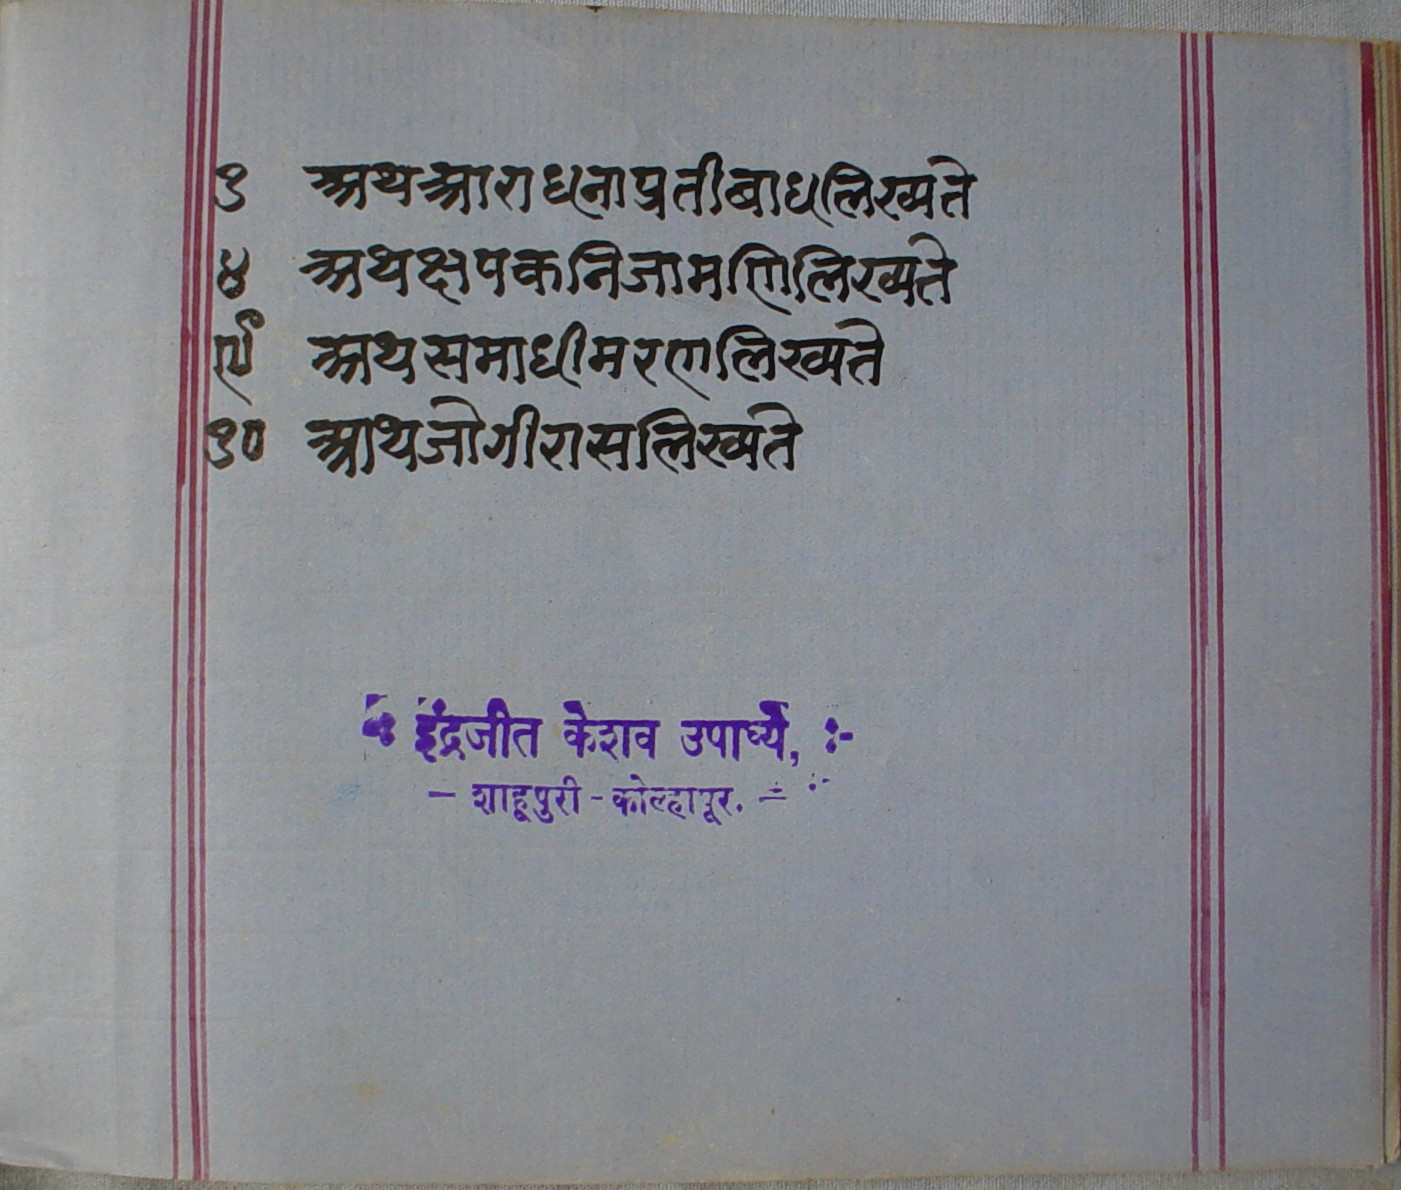 १ अथआराधनाप्रतीबाधलिख्यते
४ अथक्षपकनिजामणलिख्यते
९ अथसमाधीमरणलिख्यते
१० आथजोगीरासलिख्यते
इंद्रजीत केशव उपाध्ये, :-
– शाहूपुरी - कोल्हापूर. –